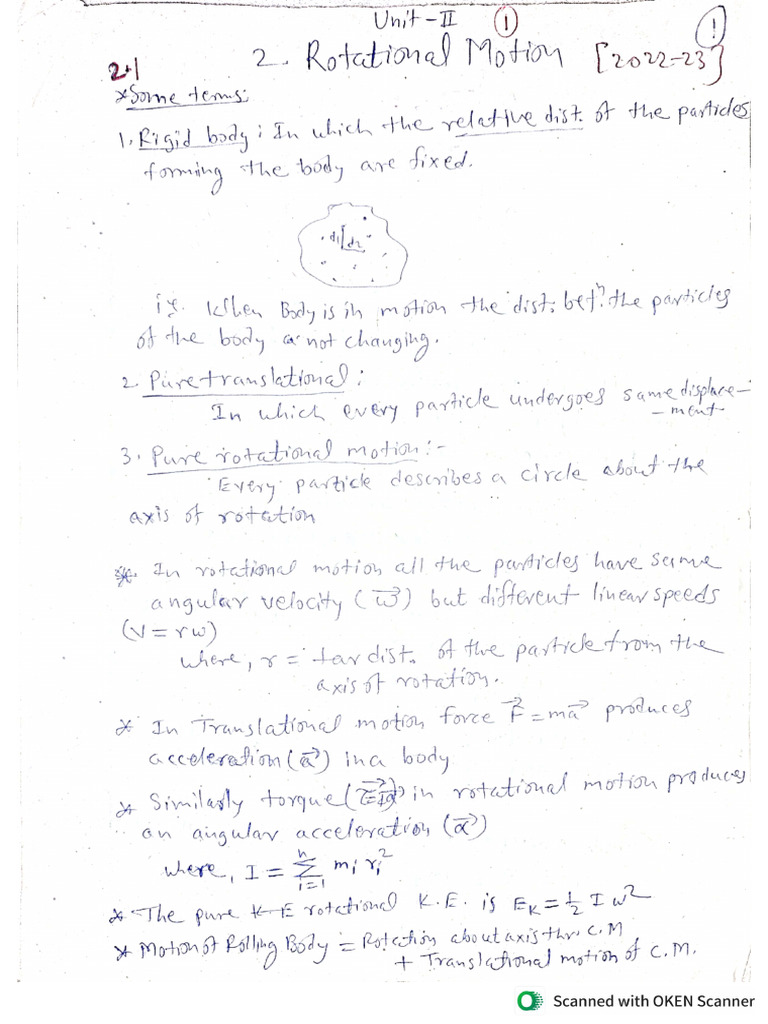 Unit-II ① ①
2. Rotational Motion [2022-23]
2+1
*Some terms:
1. Rigid body: In which the relative dist. of the particles
forming the body are fixed.
d1 d2
ie. When Body is in motion the dist. betn. the particles
of the body a not changing.
2. Pure translational:
In which every particle undergoes same displace-
-ment
3. Pure rotational motion:-
Every particle describes a circle about the
axis of rotation
* In rotational motion all the particles have same
angular velocity (ω⃗) but different linear speeds
(v=rω)
where, r = dist. of the particle from the
axis of rotation.
* In Translational motion force F⃗=ma⃗ produces
acceleration (a⃗) in a body
* Similarly torque (τ⃗=Iα⃗) in rotational motion produces
an angular acceleration (α⃗)
where, I = Σ mi ri² n i=1
* The pure K E rotational K.E. is EK=½ I ω²
* Motion of Rolling Body = Rotation about axis thr. C.M
+ Translational motion of C.M.
Scanned with OKEN Scanner